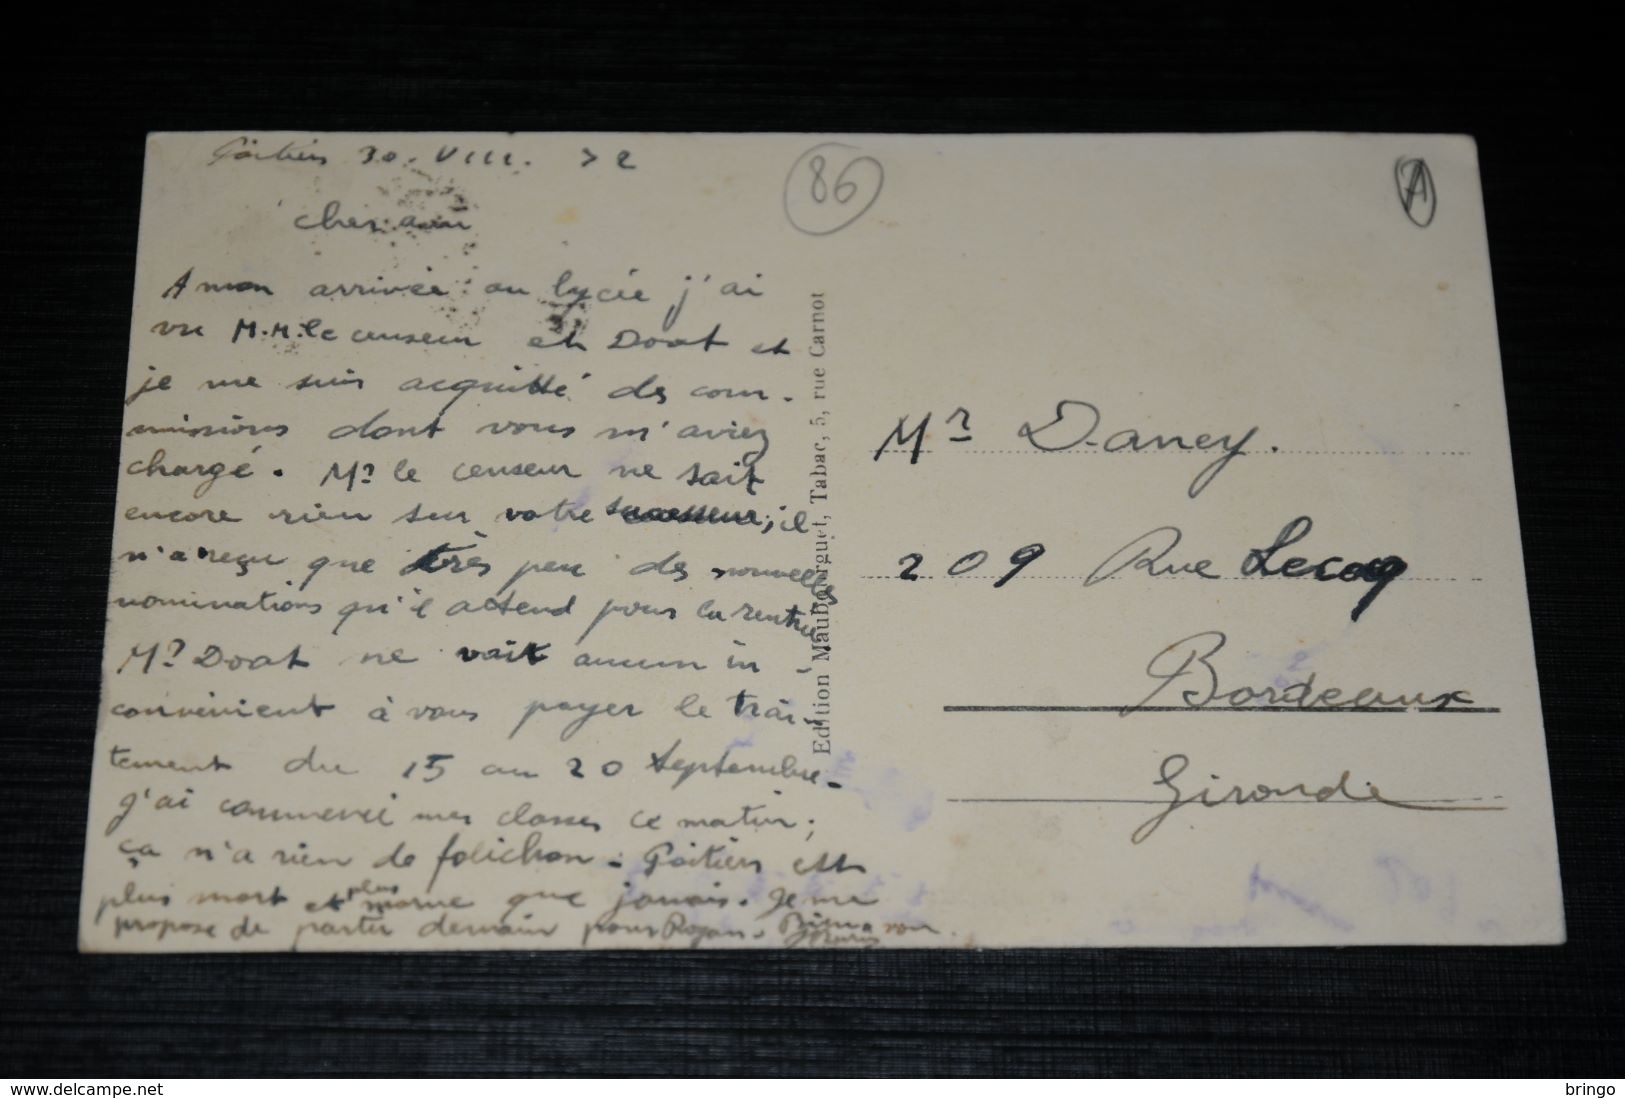 Poitiers 30. VIII. 32
cher ami
A mon arrivée au lycée j'ai
vu M.M. le censeur et Doat et
je me suis acquitté des com-
missions dont vous m'aviez
chargé. Mr le censeur ne sait
encore rien sur votre successeur; il
n'a reçu que très peu des nouvelles
nominations qu'il attend pour la rentrée
Mr Doat ne voit aucun in-
convénient à vous payer le trai-
tement du 15 au 20 Septembre-
J'ai commencé mes classes ce matin;
ça n'a rien de folichon - Poitiers est
plus mort et plus morne que jamais. Je me
propose de partir demain pour Royan -
86
A
Edition Maubourguet, Tabac, 5, rue Carnot
Mr Daney.
209 Rue Lecocq
Bordeaux
Gironde
www.delcampe.net
bringo